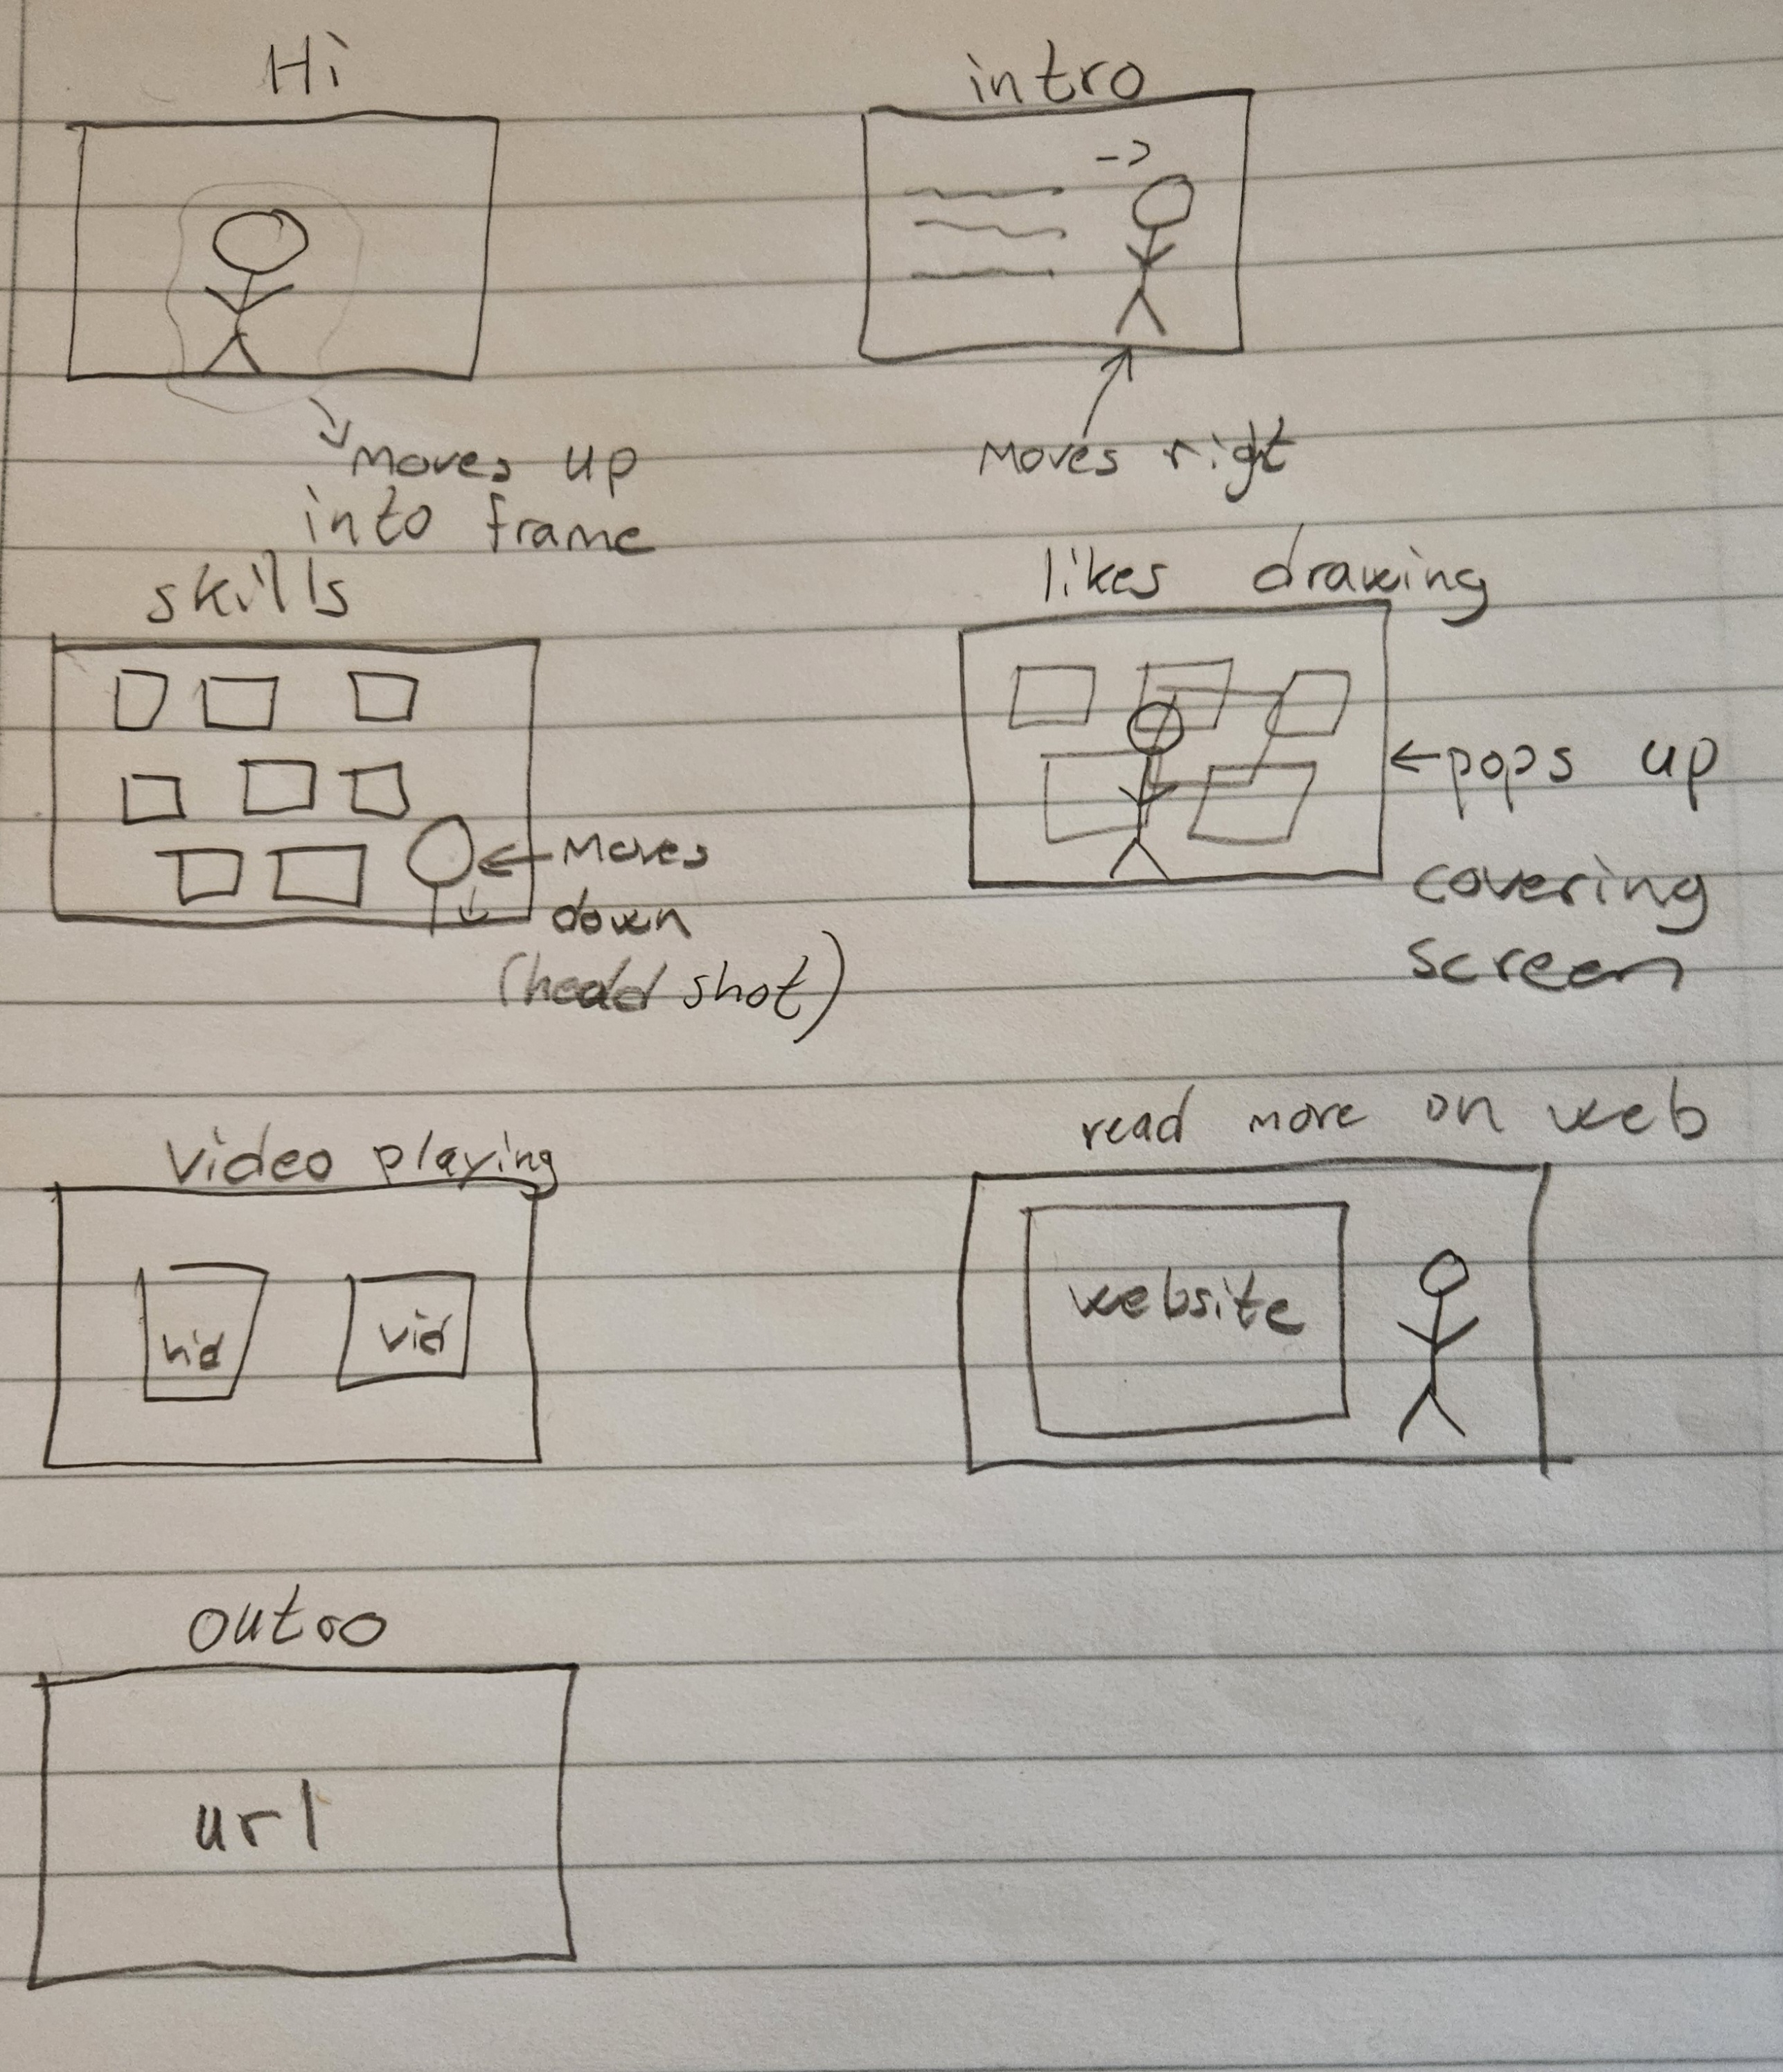 Hi
intro
->
moves up
into frame
Moves right
skills
likes drawing
pops up
covering
screen
Moves
down
(head shot)
video playing
vid
vid
read more on web
website
outro
url